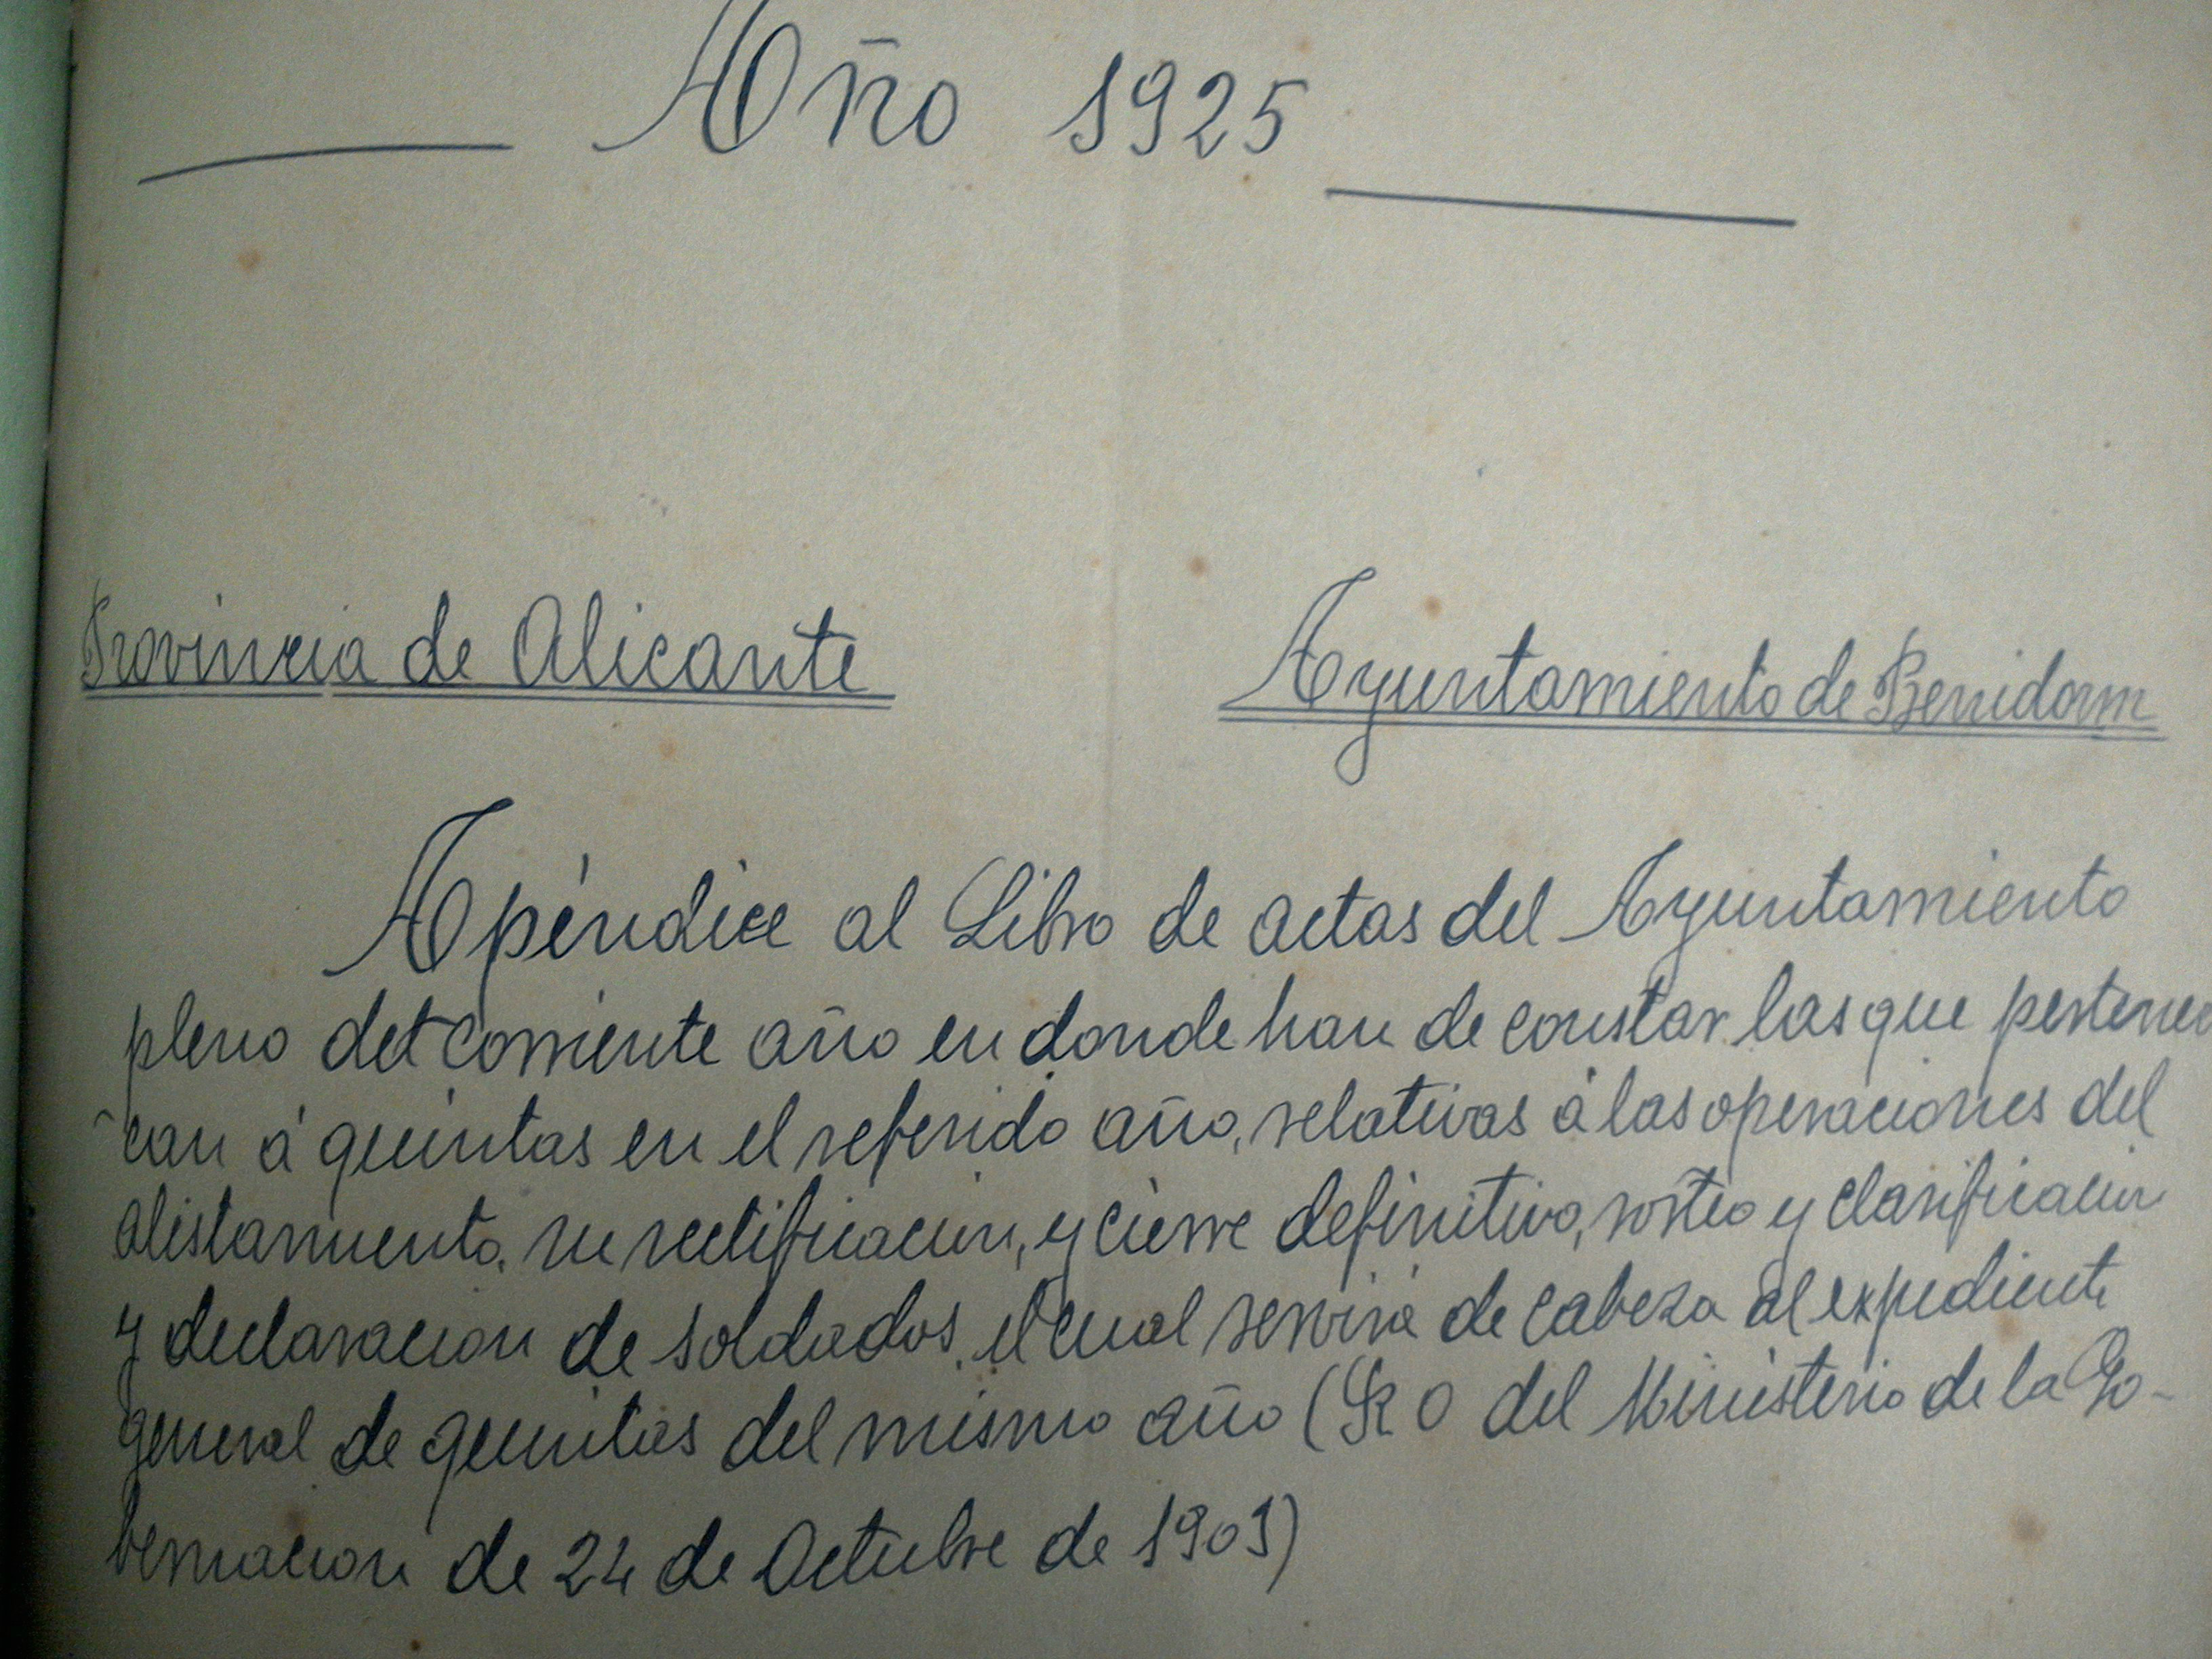 Año 1925
Provincia de Alicante
Ayuntamiento de Benidorm
Apéndice al Libro de actas del Ayuntamiento
pleno del corriente año en donde han de constar las que pertenez
can á quintas en el referido año, relativas á las operaciones del
alistamiento, su rectificacion, y cierre definitivo, sorteo y clasificacion
y declaracion de soldados, el cual servirá de cabeza al expediente
general de quintas del mismo año (R O del Ministerio de la Go-
bernacion de 24 de Octubre de 1909)